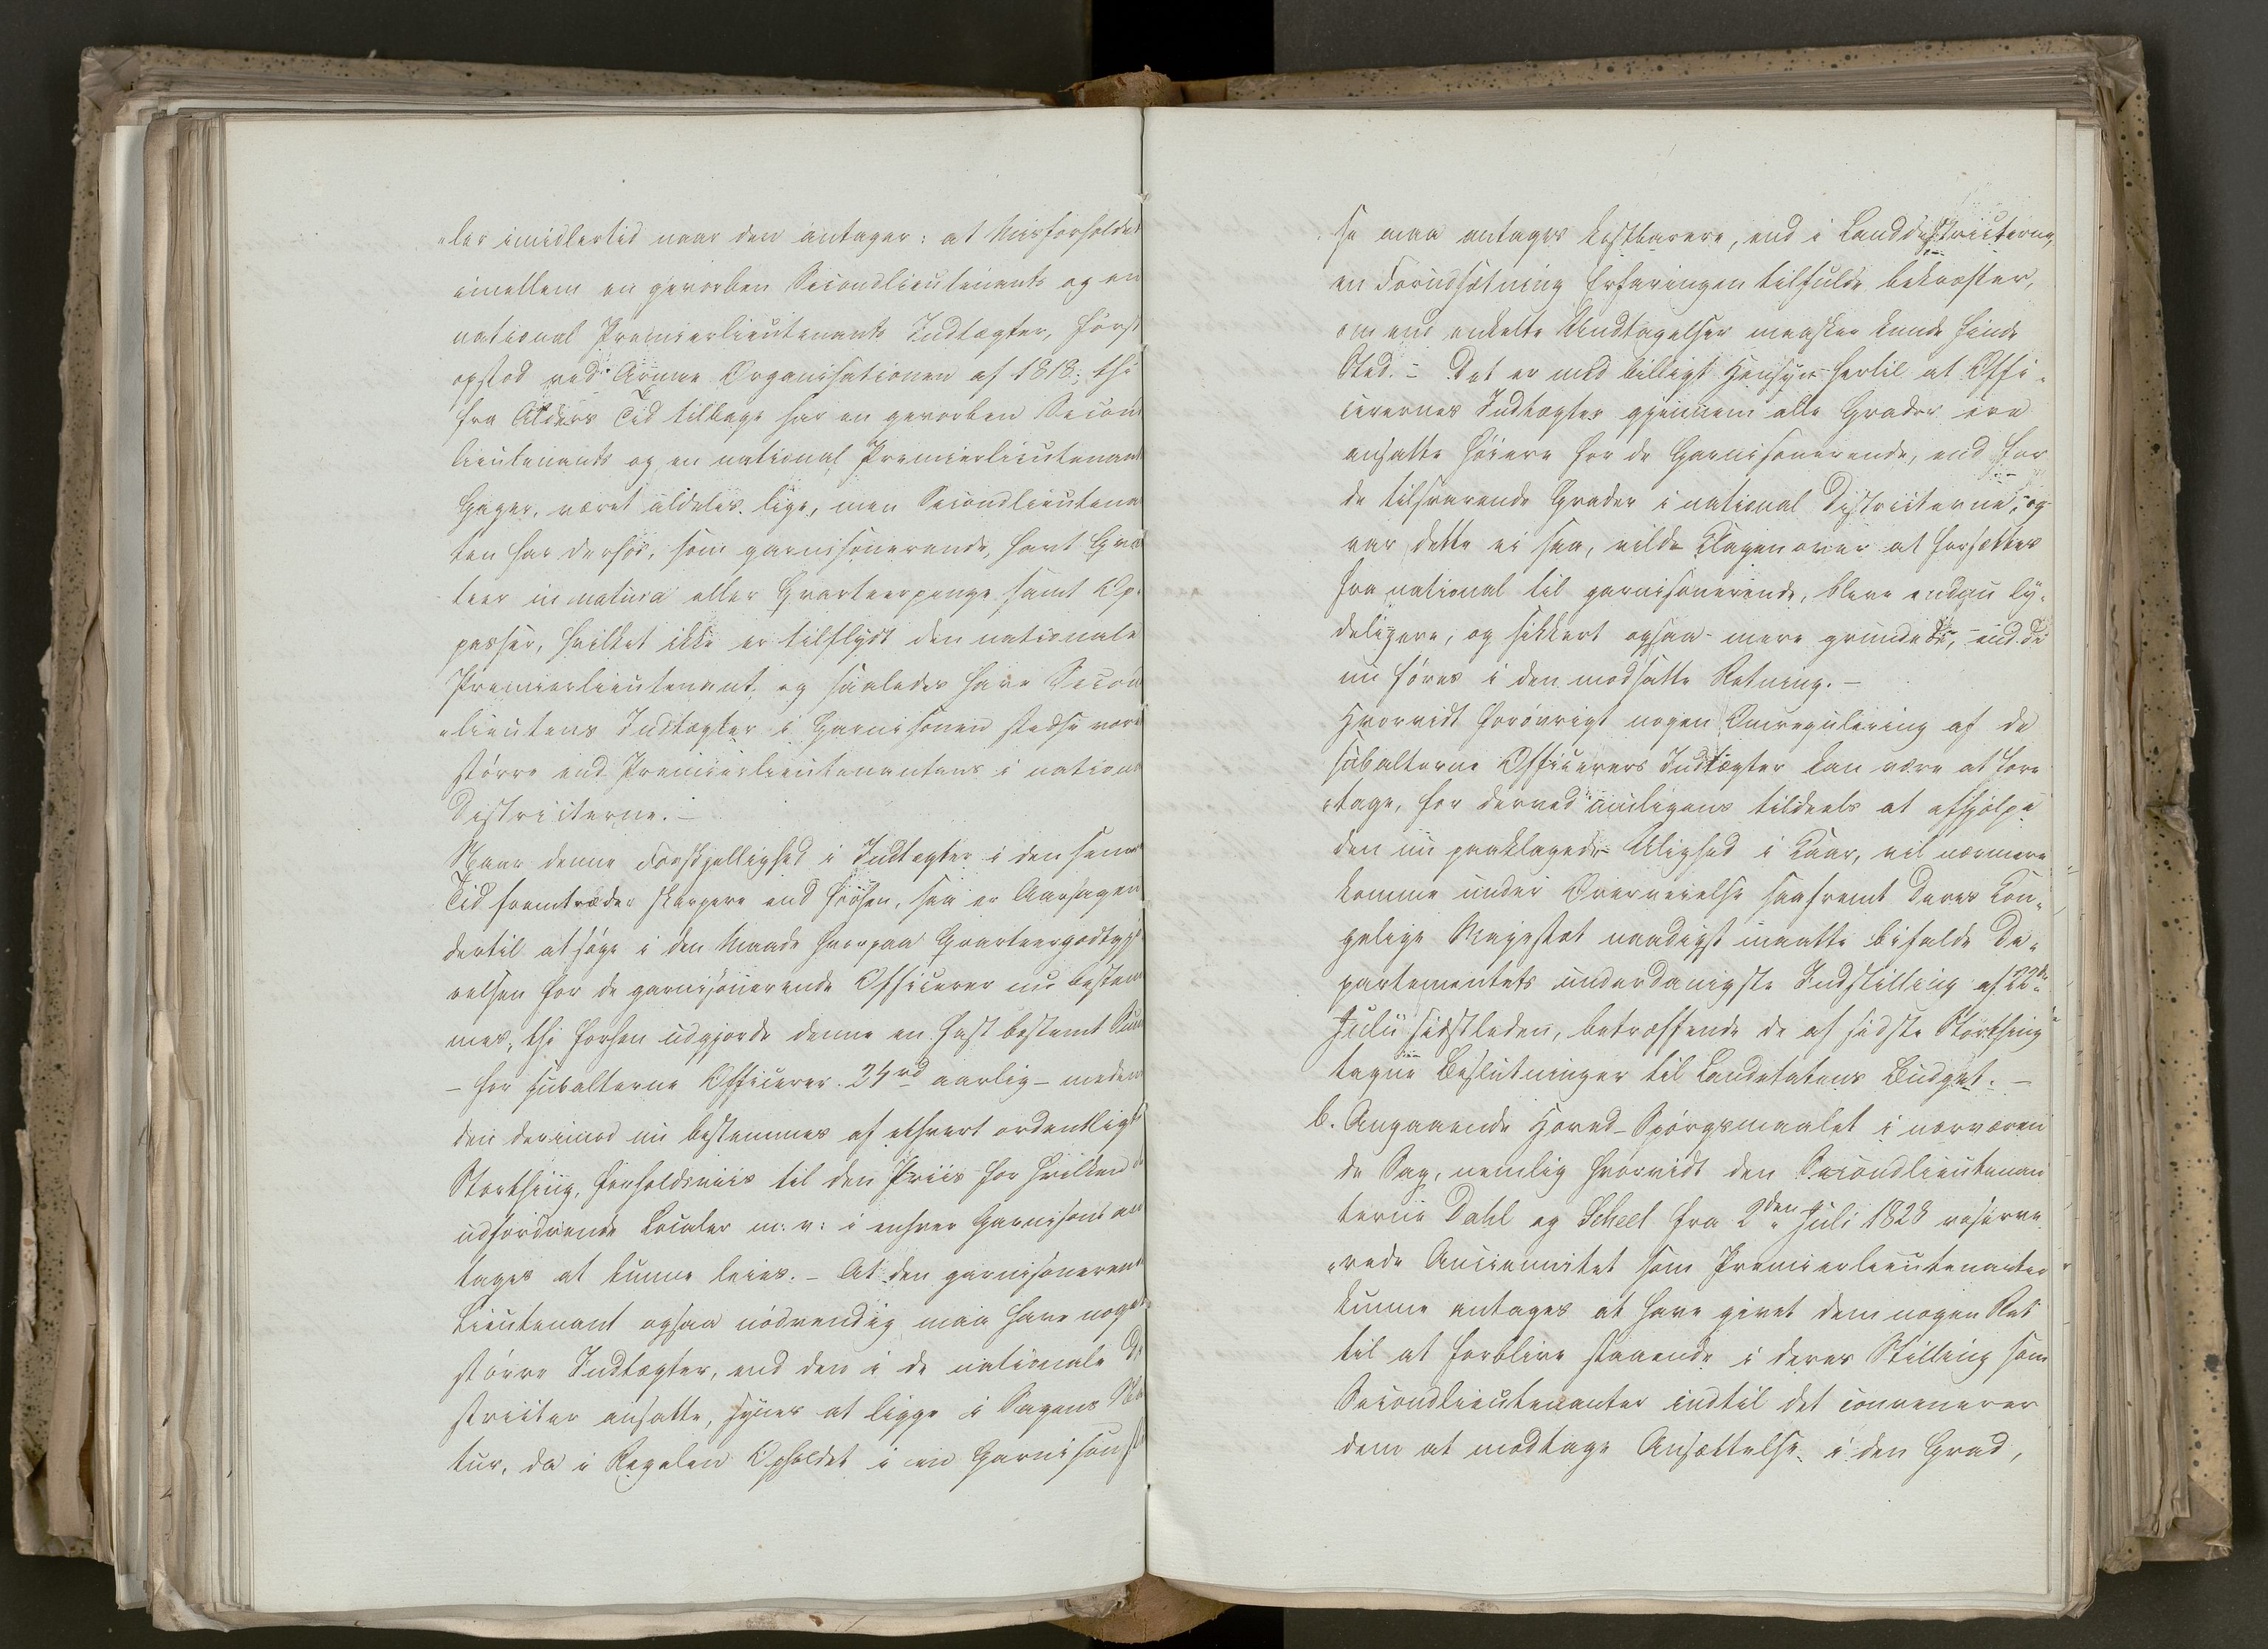 "ler imidlertid naar den antager: at Misforholdet
imellem en gevorben Secondlieutenants og en
national Premierlieutenants Indtægter, först
opstod ved Armee Organisationen af 1818; thi
fra Alders Tid tilbage har en gevorben Secon
lieutenants og en national Premierlieutenant
Gager, været aldeles lige, men Secondlieutena
ten har derhos, som garnisonerende, havt Qvar
teer in natura eller Qvarteerpenge samt Op-
passer, hvilket ikke er tilflydt den nationale
Premierlieutenant, og saaledes have Secon
"lieutens Indtægter i Garnisonen stedse været
större end Premierlieutenantens i nation
Districterne. –
Naar denne Forskjellighed i Indtægter i den senere
Tid fremtræder skarpere end förhen, saa er Aarsagen
dertil at söge i den Maade hvorpaa Qvarteergodtgj
relsen for de garnisonerende Officerer nu bestem
mes, thi forhen udgjorde denne en fast bestemt Sum
– for subalterne Officerer 24 rd aarlig – meden
den derimod nu bestemmes af ethvert ordentligt
Storthing, forholdsviis til den Priis for hvilken
udfordrende Localer m. v. i enhver Garnison an
tages at kunne leies. – At den garnisonerende
Lieutenant ogsaa nödvendig maa have noget
större Indtægter, end den i de nationale Di
stricter ansatte, synes at ligge i Sagens Na
tur, da i Regelen Opholdet i en Garnison
se maa antages kostbarere, end i Landdistricterne,
en Forudsætning Erfaringen tilfulde bekræfter,
om end enkelte Undtagelser maaskee kunde finde
Sted. – Det er med billigt Hensyn hertil at Offi-
cerernes Indtægter gjennem alle Grader ere
ansatte höiere for de Garnisonerende, end for
de tilsvarende Grader i national Districterne, og
var dette ei saa, vilde Klagen over at forsættes
fra national til garnisonerende, blive endnu ty-
deligere, og sikkert ogsaa mere grundede, end de
nu föres i den modsatte Retning. –
Hvorvidt forövrigt nogen Omregulering af de
subalterne Officerers Indtægter kan være at fore
"tage, for derved muligens tildeels at afhjelpe
den nu paaklagede Ulighed i Kaar, vil nærmere
komme under Overveielse saafremt Deres Kon-
gelige Majestæt naadigst maatte bifalde De-
partementets underdanigste Indstilling af 22de
Julii sidstleden, betræffende de af sidste Storthing
tagne Beslutninger til Landetatens Budget. –
b. Angaaende Hoved-Spörgsmaalet i nærværen
de Sag, nemlig hvorvidt den Secondlieutenan
terne Dahl og Scheel fra 2den Juli 1828 reserve
"rede Anciennitet som Premierlieutenanter
kunne antages at have givet dem nogen Ret
til at forblive staaende i deres Stilling som
Secondlieutenanter indtil det convenerer
dem at modtage Ansættelse i den Grad,